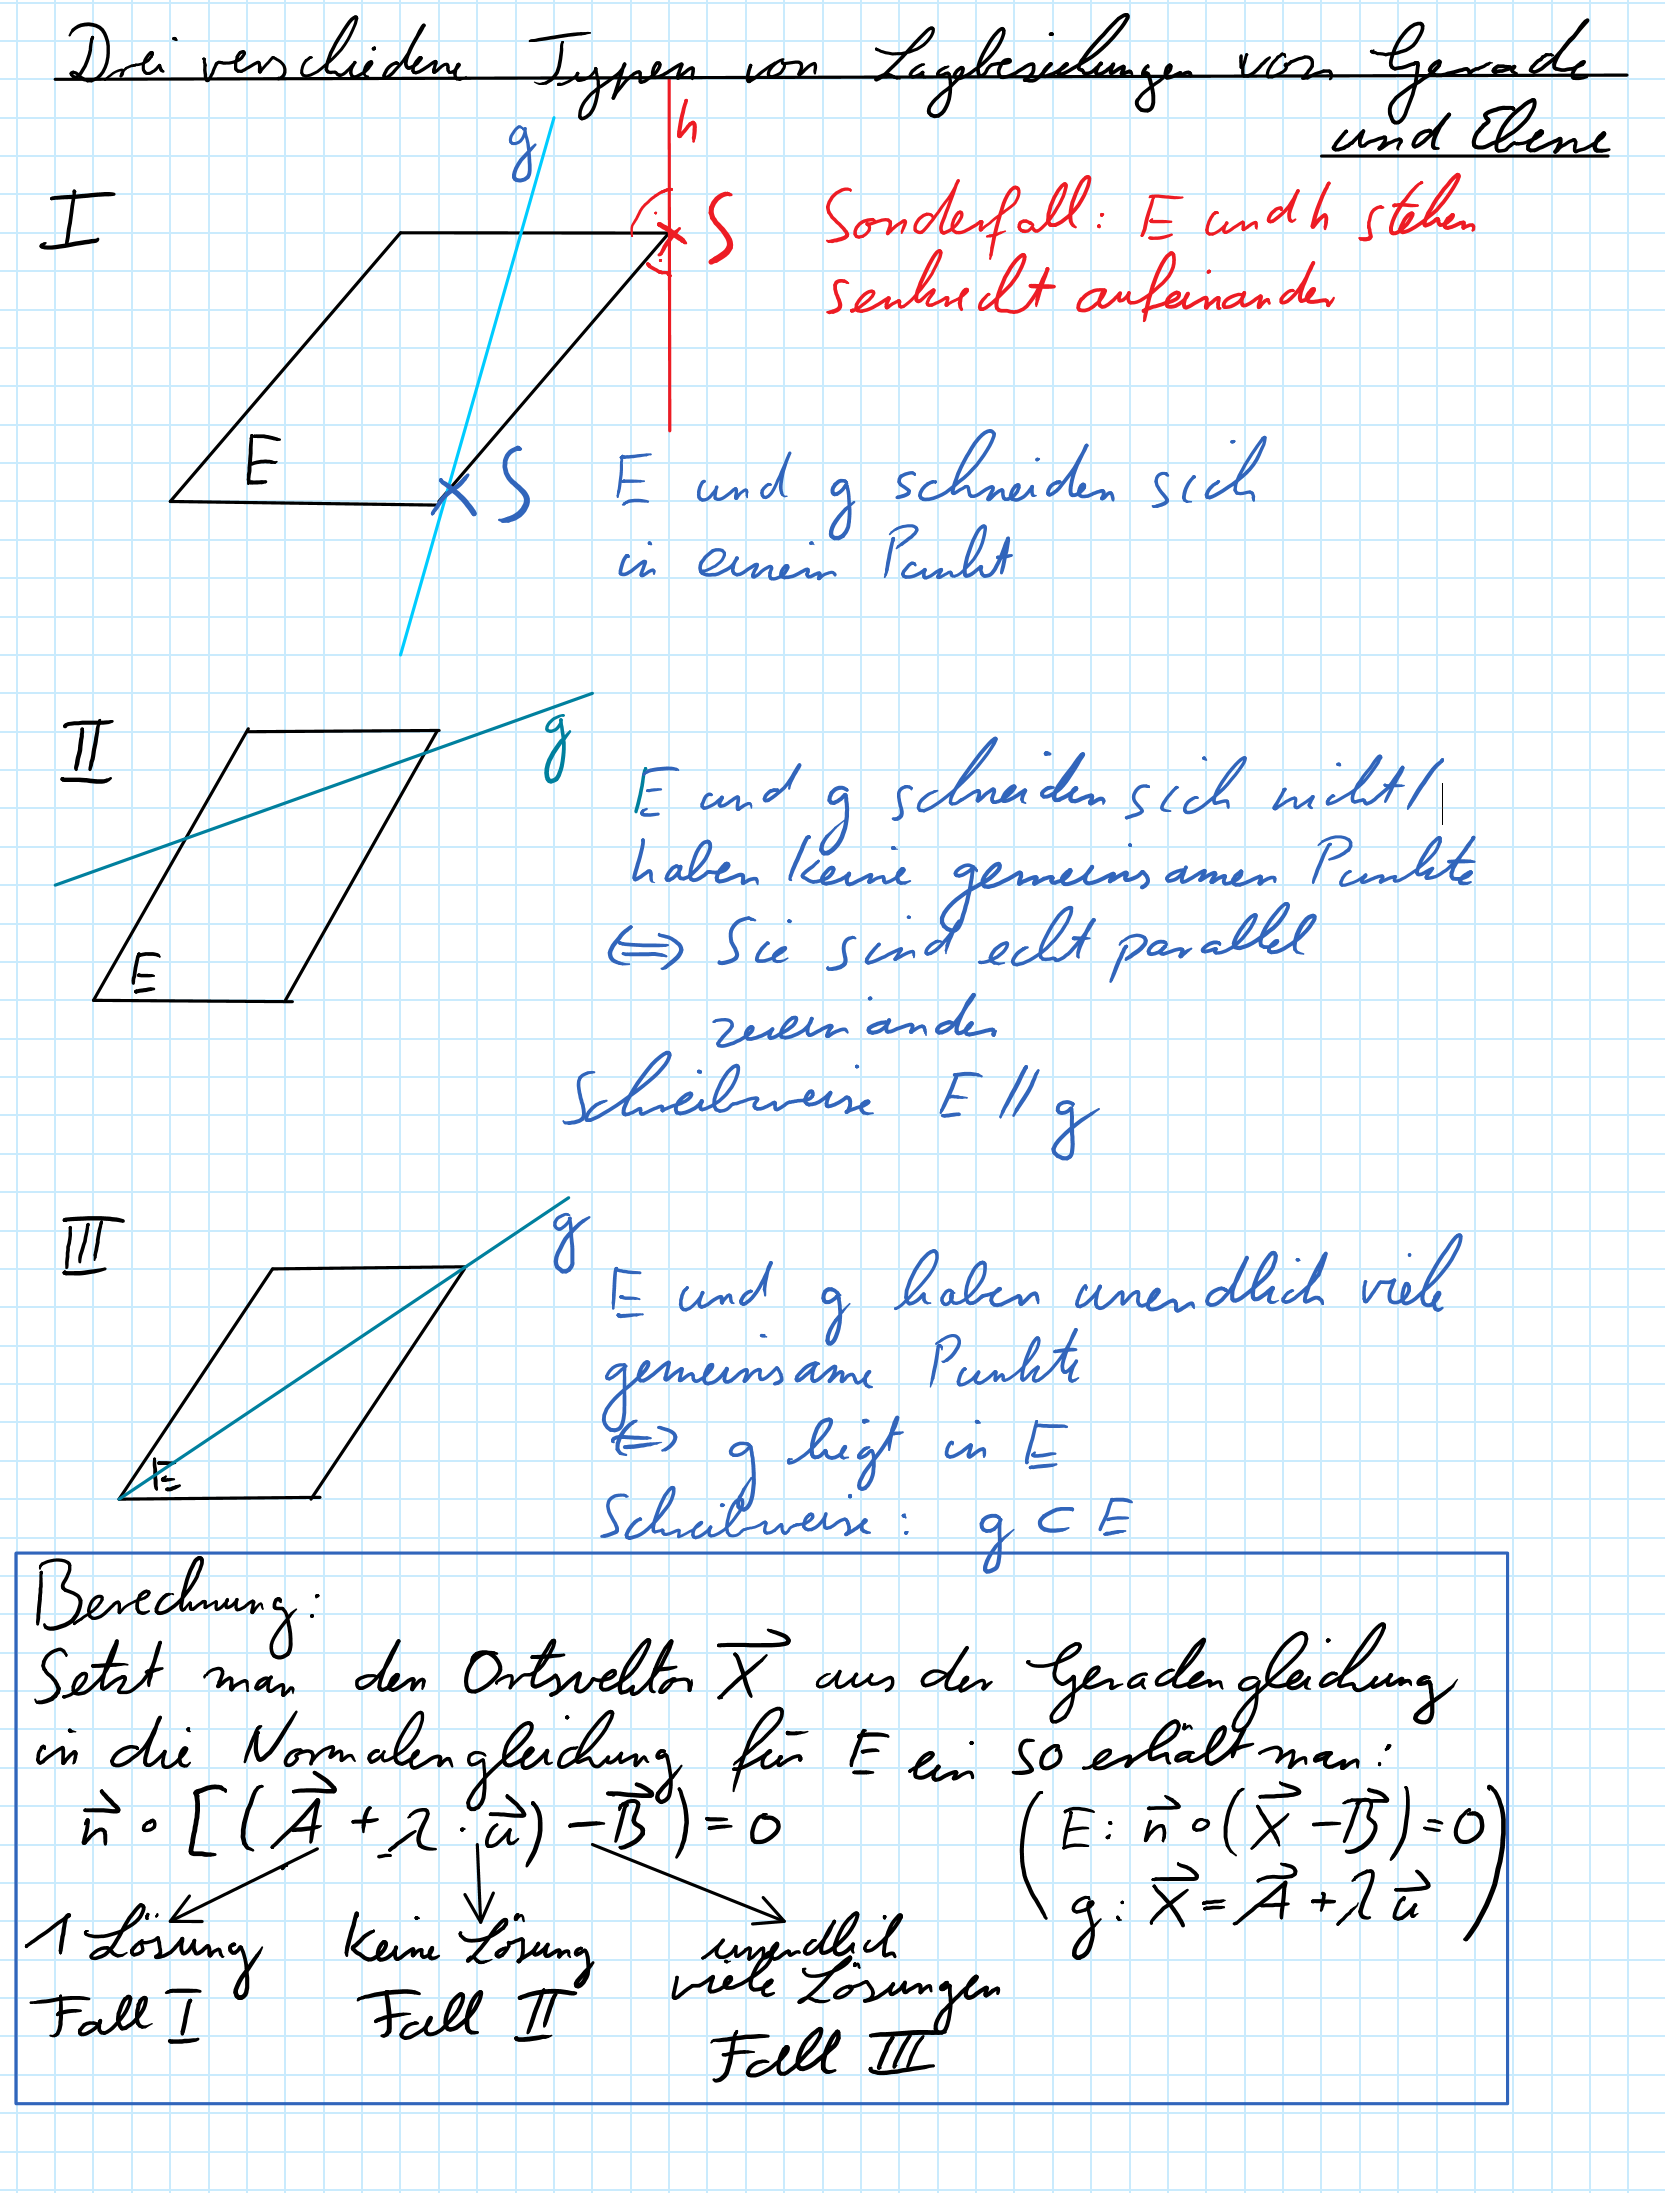 Drei verschiedene Typen von Lagebeziehungen von Gerade
und Ebene
g
h
I
S
Sonderfall: E und h stehen
senkrecht aufeinander
E
S
E und g schneiden sich
in einem Punkt
II
g
E und g schneiden sich nicht/
haben keine gemeinsamen Punkte
⇔ Sie sind echt parallel
zueinander
E
Schreibweise E // g
III
g
E und g haben unendlich viele
gemeinsame Punkte
⇔ g liegt in E
E
Schreibweise: g ⊂ E
Berechnung:
Setzt man den Ortsvektor X⃗ aus der Geradengleichung
in die Normalengleichung für E ein so erhält man:
n⃗ ∘ [(A⃗ + λ · u⃗) − B⃗) = 0
(E: n⃗ ∘ (X⃗ − B⃗) = 0
g: X⃗ = A⃗ + λ u⃗)
1 Lösung
Fall I
keine Lösung
Fall II
unendlich
viele Lösungen
Fall III